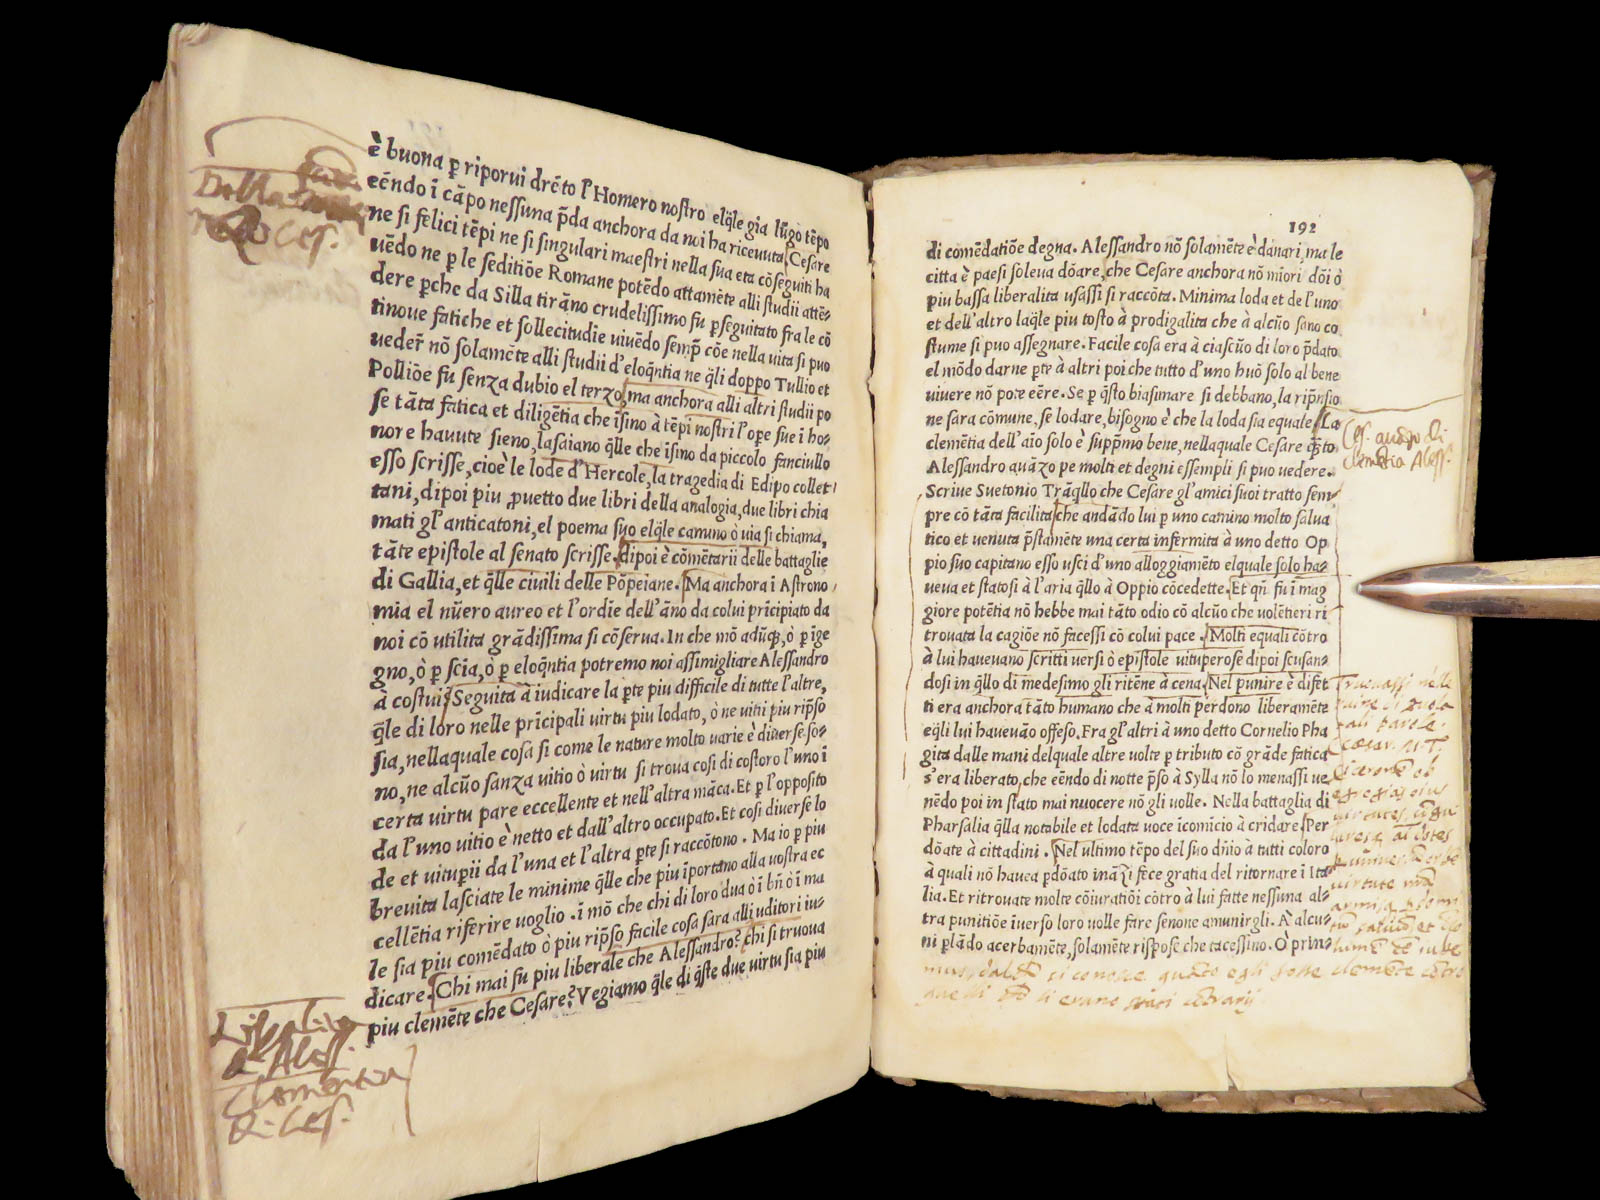 è buona ꝑ riporui drẽto l'Homero nostro elq̃le gia lũgo tẽpo
eẽndo ĩ cãpo nessuna p̃da anchora da noi ha riceuuta. Cesare
ne si felici tẽpi ne si singulari maestri nella sua eta cõseguiti ha
uẽdo ne ꝑ le seditiõe Romane potẽdo attamẽte alli studii attẽ-
dere ꝑche da Silla tirãno crudelissimo fu ꝑseguitato fra le cõ
tinoue fatiche et sollecitudĩe uiuẽdo semp̃ cõe nella uita si puo
uedeř nõ solamẽte alli studii d'eloq̃ntia ne q̃li doppo Tullio et
Polliõe fu senza dubio el terzo, ma anchora alli altri studii po
se tãta fatica et diligẽtia che ĩsino à tẽpi nostri l'oꝑe sue ĩ ho-
nore hauute sieno, lasaiano q̃lle che ĩsino da piccolo fanciullo
esso scrisse, cioè le lode d'Hercole, la tragedia di Edipo collet
tani, dipoi piu ꝓuetto due libri della analogia, due libri chia
mati gl'anticatoni, el poema suo elq̃le camino ò uia si chiama,
tãte epistole al senato scrisse. dipoi è cõmẽtarii delle battaglie
di Gallia, et q̃lle ciuili delle Põpeiane. Ma anchora ĩ Astrono
mia el nũero aureo et l'ordĩe dell'ãno da colui prĩcipiato da
noi cõ utilita grãdissima si cõserua. In che mõ adũq̃, ò ꝑ ĩge
gno, ò ꝑ scĩa, ò ꝑ eloq̃ntia potremo noi assimigliare Alessandro
à costui? Seguita à iudicare la ꝑte piu difficile di tutte l'altre,
q̃le di loro nelle prĩcipali uirtu piu lodato, ò ne uitii piu rip̃so
sia, nellaquale cosa si come le nature molto uarie è diuerse so-
no, ne alcũo sanza uitio ò uirtu si troua cosi di costoro l'uno ĩ
certa uirtu pare eccellente et nell'altra mãca. Et ꝑ l'opposito
da l'uno uitio è netto et dall'altro occupato. Et cosi diuerse lo
de et uituꝑii da l'una et l'altra ꝑte si raccõtono. Ma io ꝑ piu
breuita lasciate le minime q̃lle che piu ĩportano alla uostra ec
cellẽtia riferire uoglio. ĩ mõ che chi di loro dua ò ĩ bñ ò ĩ ma
le sia piu comẽdato ò piu rip̃so facile cosa sara alli uditori iu-
dicare. Chi mai fu piu liberale che Alessandro? chi si truoua
piu clemẽte che Cesare? Vegiamo q̃le di q̃ste due uirtu sia piu
Ces.
Aless.
Clementia
di Ces.
192
di comẽdatiõe degna. Alessandro nõ solamẽte è danari, ma le
citta è paesi soleua dõare, che Cesare anchora nõ mĩori dõi ò
piu bassa liberalita usassi si raccõta. Minima loda et de l'uno
et dell'altro laq̃le piu tosto à prodigalita che à alcũo sano co
stume si puo assegnare. Facile cosa era à ciascũo di loro p̃dato
el mõdo darne ꝑte à altri poi che tutto d'uno huõ solo al bene
uiuere nõ pote eẽre. Se ꝑ q̃sto biasimare si debbano, la rip̃nsio
ne sara cõmune, se lodare, bisogno è che la loda sia equale. La
clemẽtia dell'aĩo solo è supp̃mo bene, nellaquale Cesare q̃to
Alessandro auãzo pe molti et degni essempli si puo uedere.
Scriue Suetonio Trãq̃llo che Cesare gl'amici suoi tratto sem-
pre cõ tãta facilita che andãdo lui ꝑ uno camino molto salua
tico et uenuta p̃stamẽte una certa infermita à uno detto Op
pio suo capitano esso usci d'uno alloggiamẽto elquale solo ha-
ueua et statosi à l'aria q̃llo à Oppio cõcedette. Et q̃ñ fu ĩ mag
giore potẽtia nõ hebbe mai tãto odio cõ alcũo che uolẽtieri ri
trouata la cagiõe nõ facessi cõ colui pace. Molti equali cõtro
à lui haueuano scritti uersi ò epistole uituperose dipoi scusan-
dosi in q̃llo di medesimo gli ritẽne à cena. Nel punire è difet
ti era anchora tãto humano che à molti perdono liberamẽte
eq̃li lui haueuão offeso. Fra gl'altri à uno detto Cornelio Pha
gita dalle mani delquale altre uolte ꝑ tributo cõ grãde fatica
s'era liberato, che eẽndo di notte p̃so à Sylla nõ lo menassi ue
nẽdo poi in stato mai nuocere nõ gli uolle. Nella battaglia di
Pharsalia q̃lla notabile et lodata uoce ĩcomĩcio à cridare. Per
dõate à cittadini. Nel ultimo tẽpo del suo dñio à tutti coloro
à quali nõ hauea ꝑdõato inãzi fece gratia del ritornare ĩ Ita
lia. Et ritrouate molte cõiuratiõi cõtro à lui fatte nessuna al-
tra punitiõe ĩuerso loro uolle fare senone amunirgli. A alcu-
ni ꝑlãdo acerbamẽte, solamẽte rispose che tacessino. O prin-
Ces. auãzo di
clemẽtia Aless.